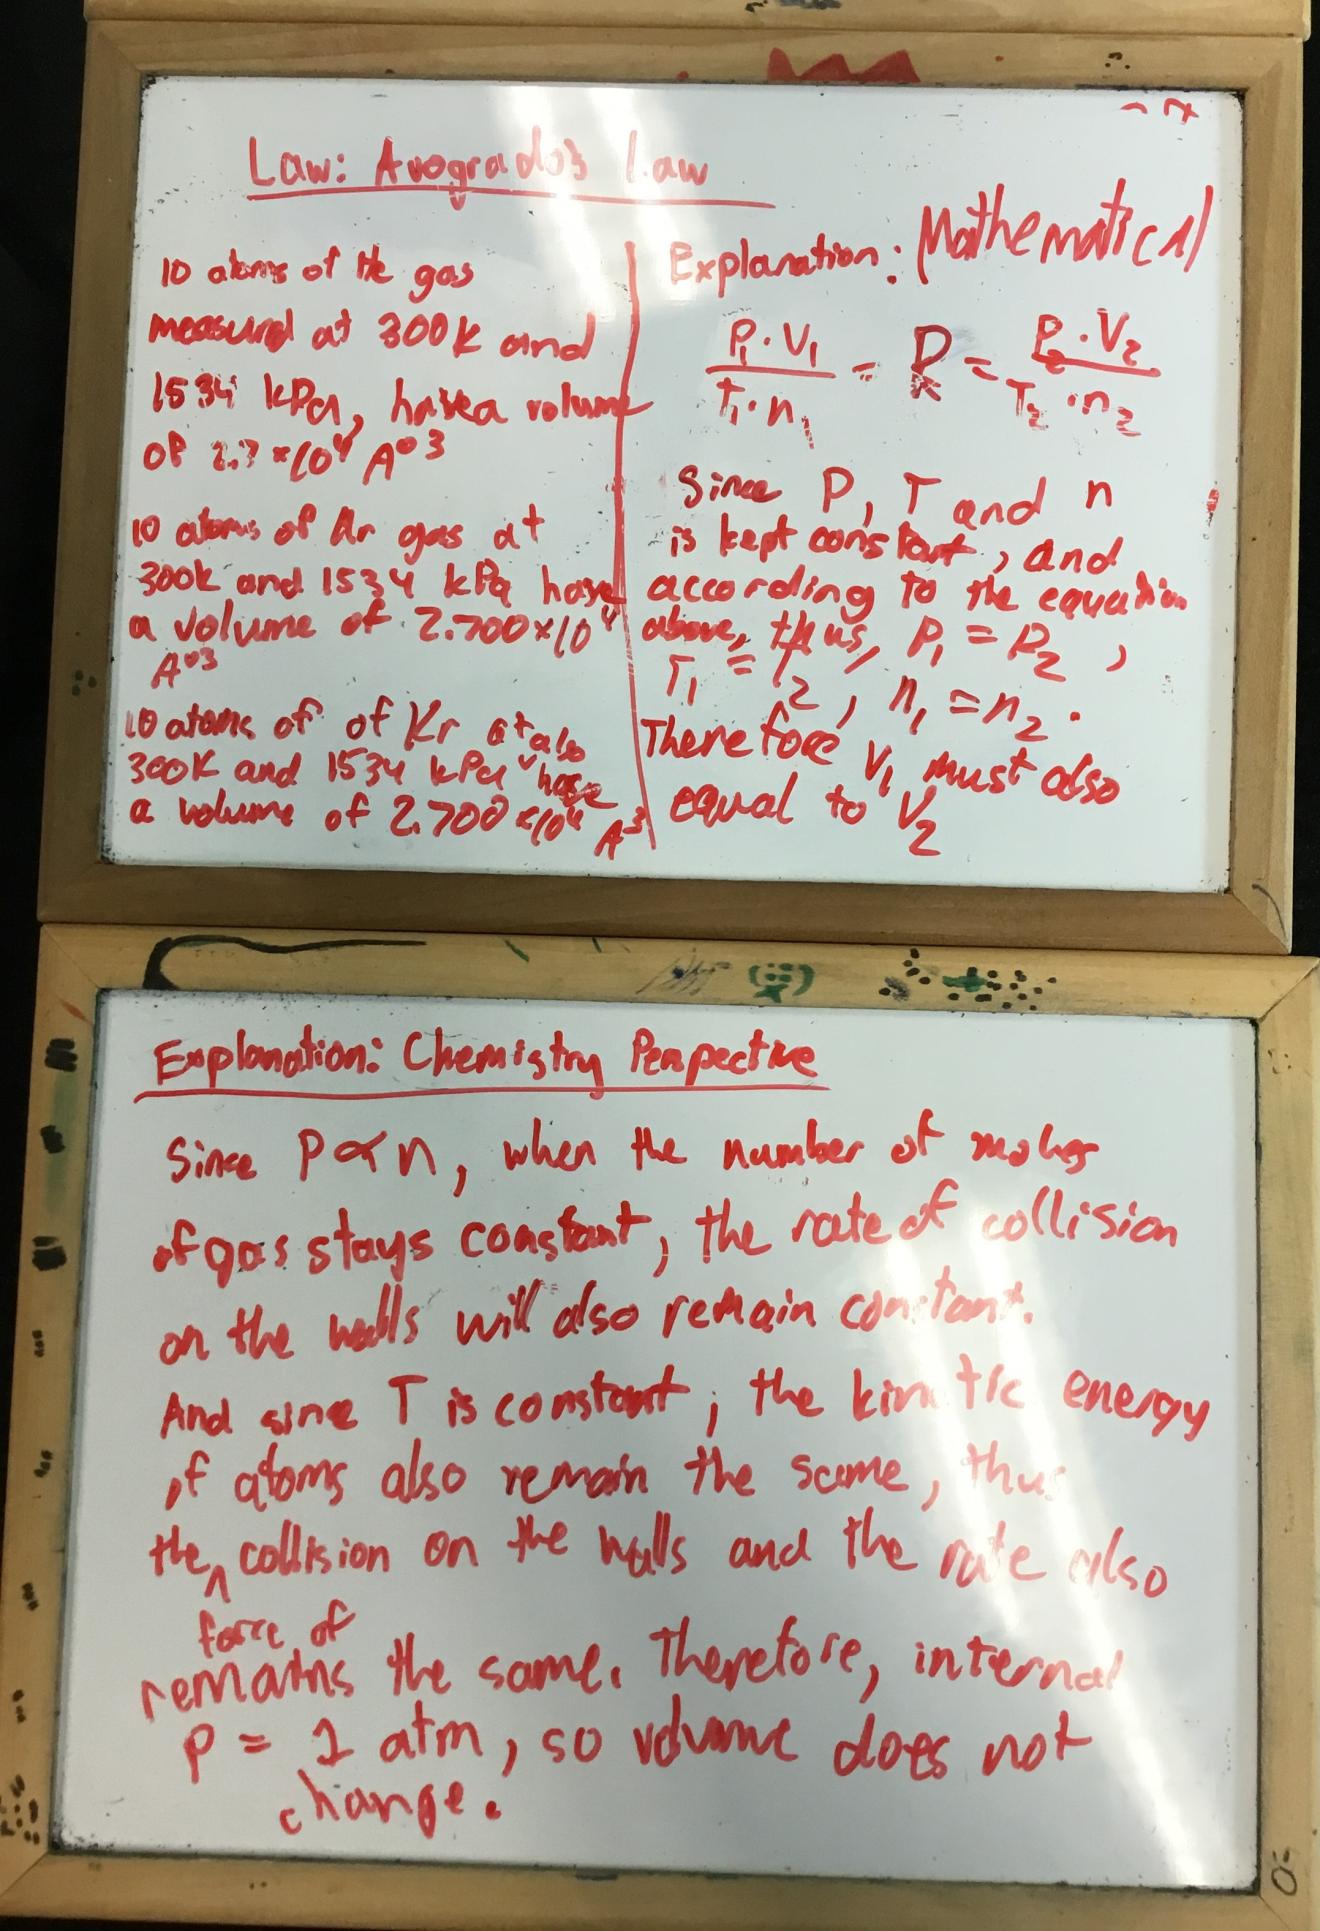 Law: Avogrado's Law
10 atoms of He gas
measured at 300K and
1534 kPa, have a volume
of 2.7 × 10⁴ A°³
10 atoms of Ar gas at
300K and 1534 kPa have
a volume of 2.700 × 10⁴
A°³
10 atoms of of Kr at also
300K and 1534 kPa have
a volume of 2.700 × 10⁴ A³
Explanation: Mathematical
P₁·V₁ / T₁·n₁ = R = P₂·V₂ / T₂·n₂
Since P, T and n
is kept constant, and
according to the equation
above, thus, P₁ = P₂,
T₁ = T₂, n₁ = n₂.
Therefore V₁ must also
equal to V₂
Explanation: Chemistry Perspective
Since P ∝ n, when the number of moles
of gas stays constant, the rate of collision
on the walls will also remain constant.
And since T is constant, the kinetic energy
of atoms also remain the same, thus
the force of collision on the walls and the rate also
remains the same. Therefore, internal
P = 1 atm, so volume does not
change.